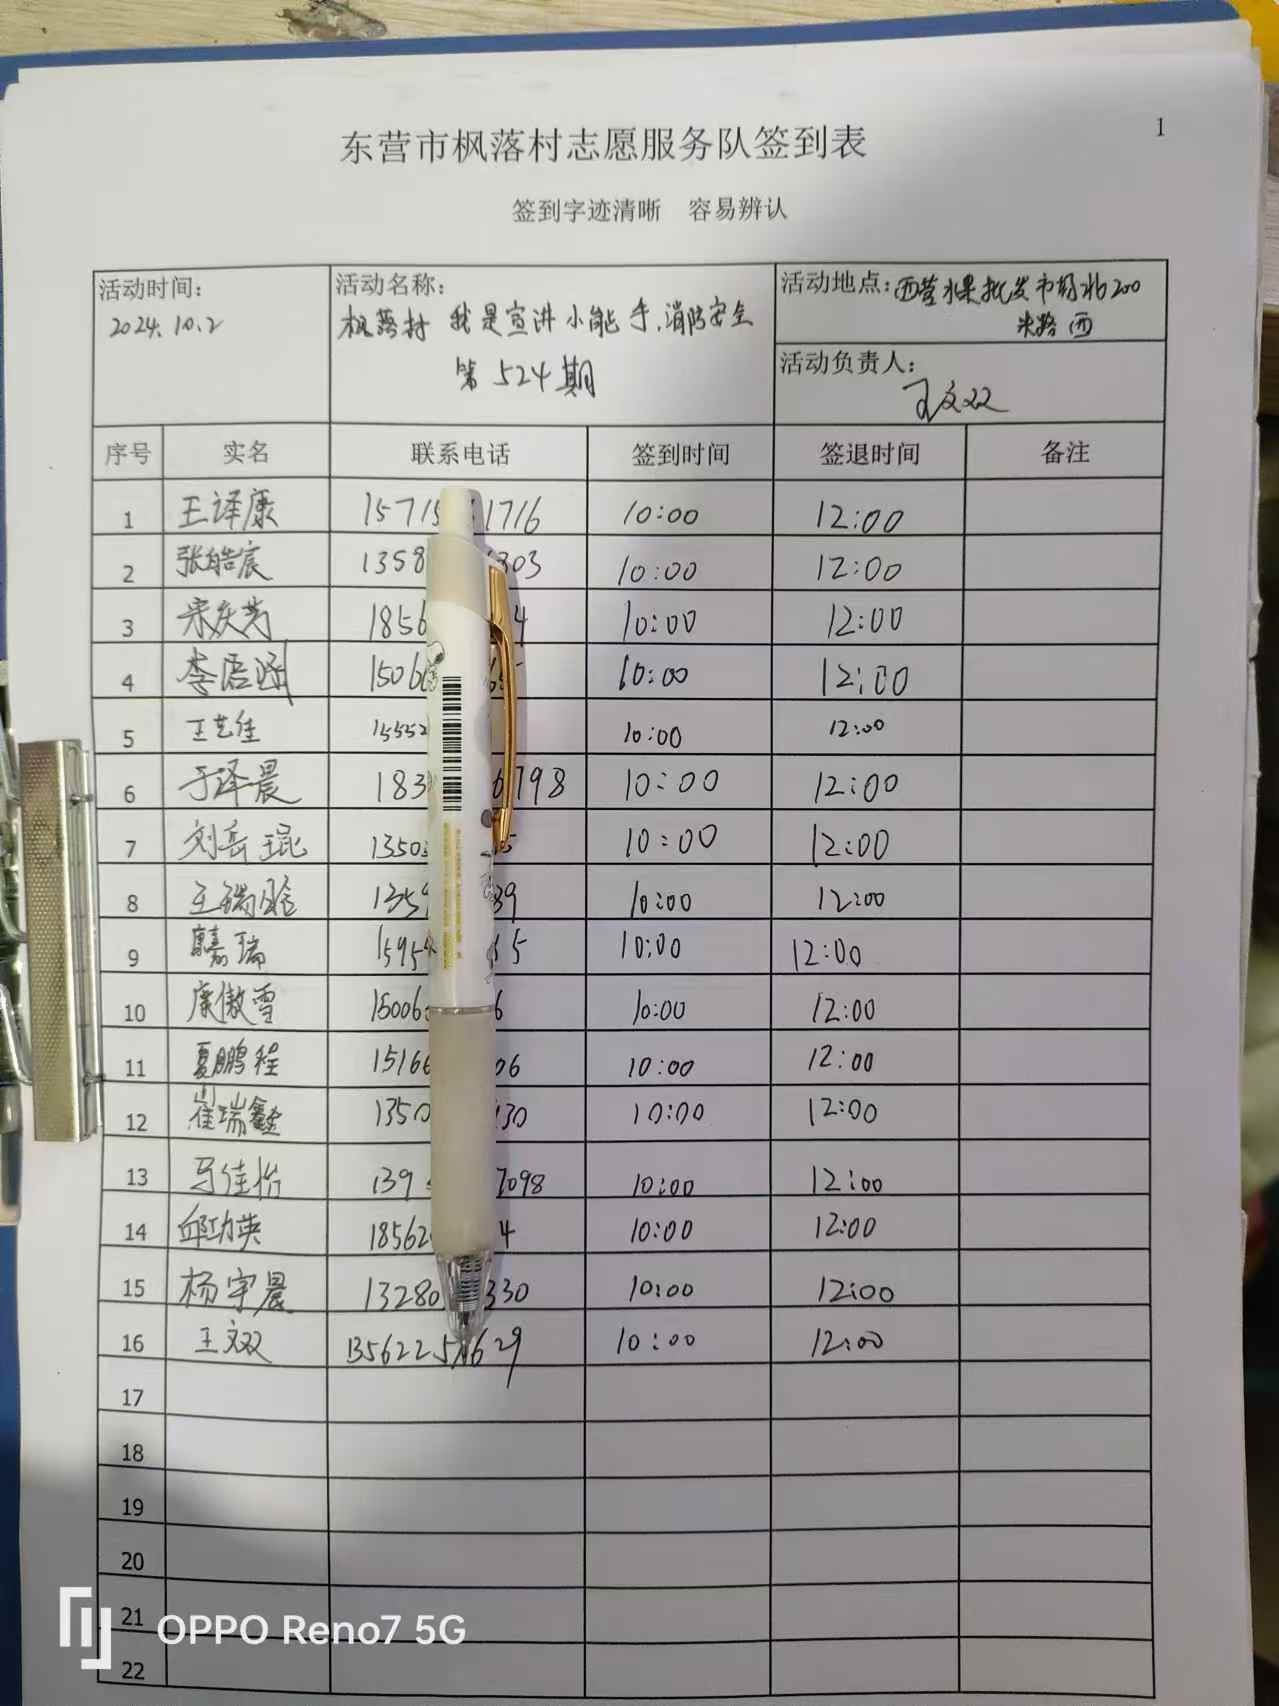 1
东营市枫落村志愿服务队签到表
签到字迹清晰 容易辨认
活动时间:
2024.10.2
活动名称:
枫落村 我是宣讲小能手.消防安全
第524期
活动地点: 西营水果批发市场北200
米路西
活动负责人:
王文双
序号 实名 联系电话 签到时间 签退时间 备注
1 王译康 15715 1716 10:00 12:00
2 张皓宸 1358 303 10:00 12:00
3 宋庆芳 1856 4 10:00 12:00
4 李语涵 1506 65 10:00 12:00
5 王艺佳 15552 10:00 12:00
6 于泽晨 183 6798 10:00 12:00
7 刘岳琨 13503 5 10:00 12:00
8 王瑞晗 1359 39 10:00 12:00
9 嘉瑞 1595 5 10:00 12:00
10 康傲雪 15006 6 10:00 12:00
11 夏鹏程 15166 06 10:00 12:00
12 崔瑞鑫 1350 130 10:00 12:00
13 马佳怡 139 7098 10:00 12:00
14 邱功英 18562 4 10:00 12:00
15 杨宇晨 13280 330 10:00 12:00
16 王文双 1356225 629 10:00 12:00
17
18
19
20
21
22
OPPO Reno7 5G